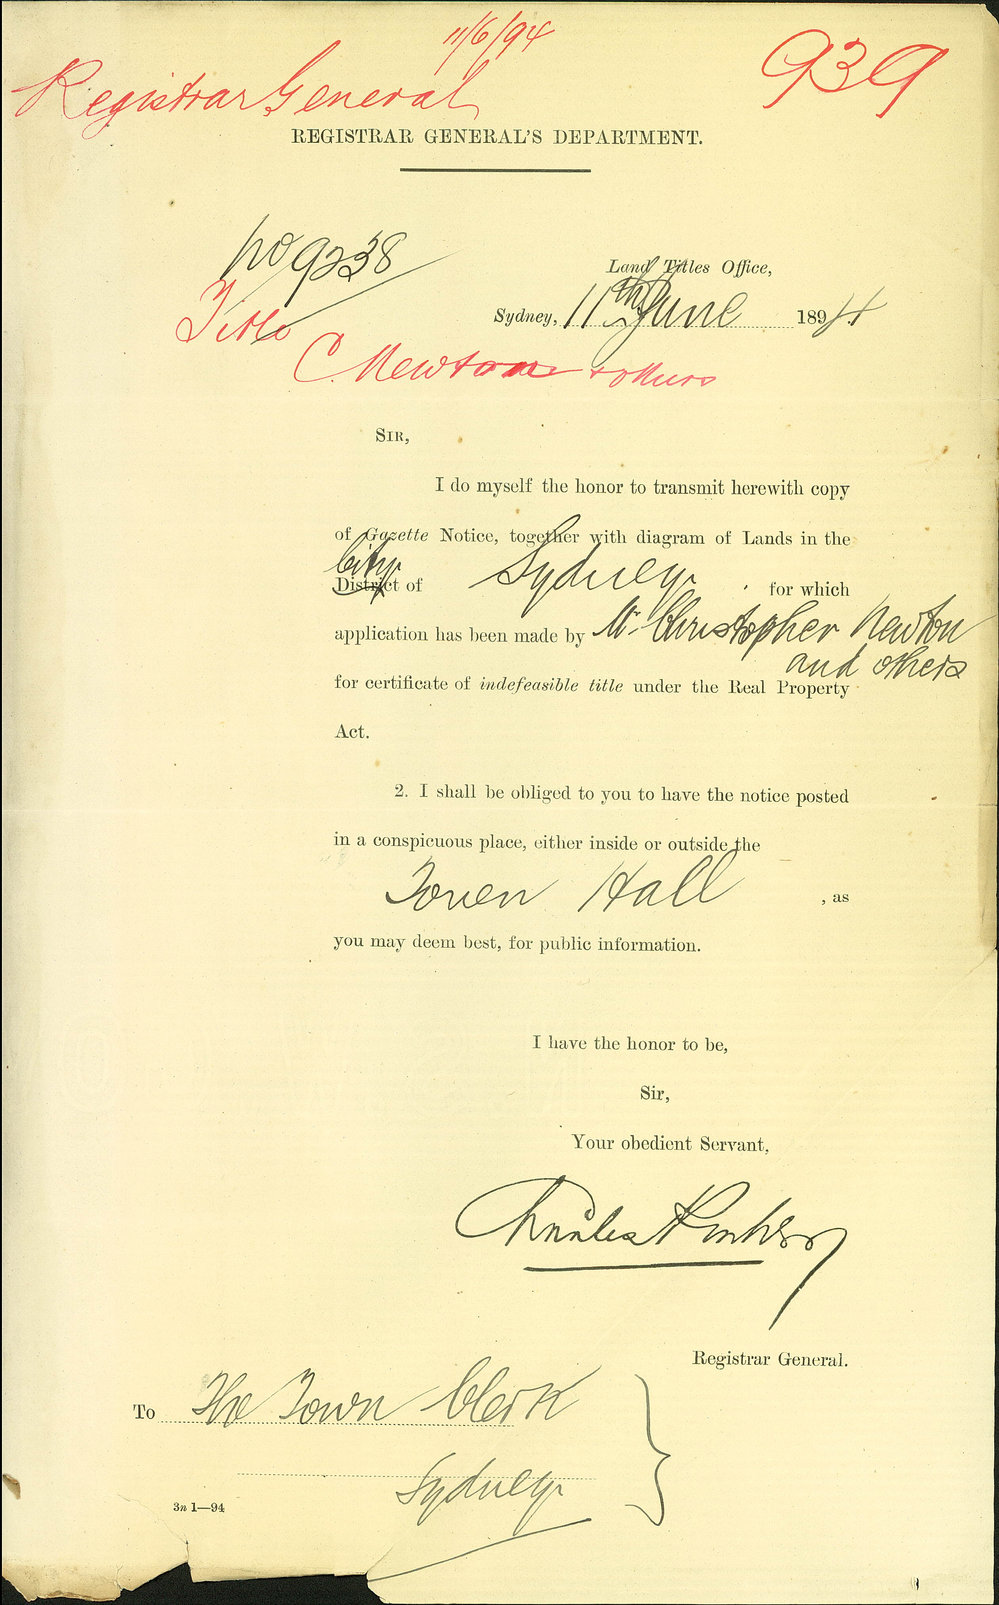 11/6/94
939
Registrar General
REGISTRAR GENERAL'S DEPARTMENT.
No 9238
Land Titles Office,
Title
Sydney, 11th June 1894
C. Newton & others
SIR,
I do myself the honor to transmit herewith copy
of Gazette Notice, together with diagram of Lands in the
City
District of Sydney for which
application has been made by Mr. Christopher Newton
and others
for certificate of indefeasible title under the Real Property
Act.
2. I shall be obliged to you to have the notice posted
in a conspicuous place, either inside or outside the
Town Hall , as
you may deem best, for public information.
I have the honor to be,
Sir,
Your obedient Servant,
Charles
Registrar General.
To The Town Clerk
Sydney
3n 1—94